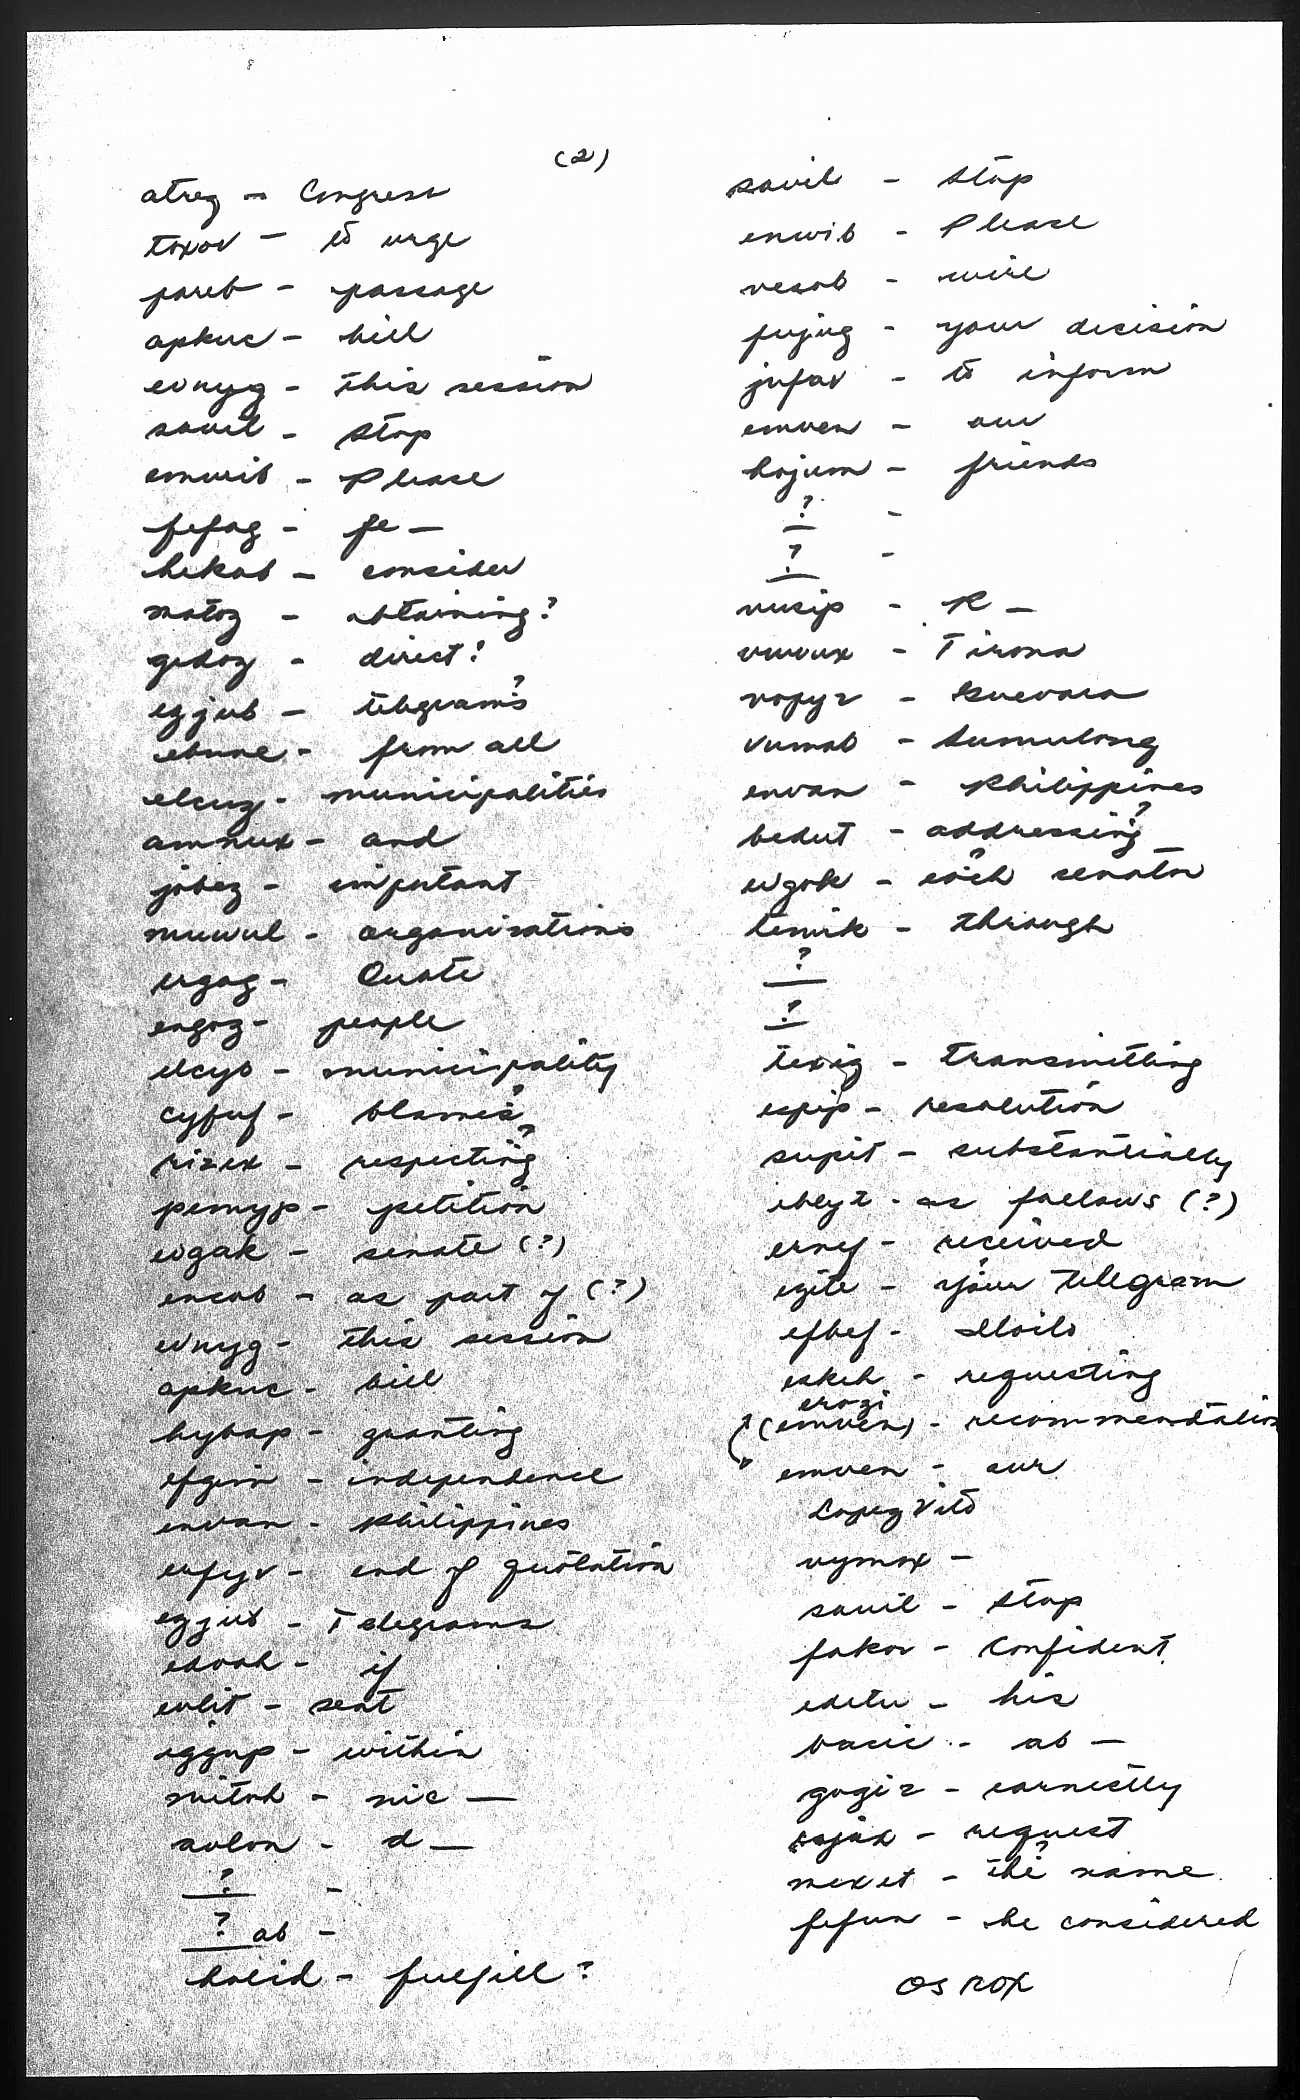 (2)
atreg - Congress
toxov - to urge
pareb - passage
apkuc - bill
evnyg - this session
savil - Stop
emwib - Please
fefag - fe —
hekab - consider
matoz - obtaining?
gedoz - direct?
egjub - telegrams?
ebune - from all
elcug - municipalities
amnux - and
jobez - important
muwul - organizations
ergag - Quote
engoz - people
elcyb - municipality
cyfuf - blames?
rizex - respecting?
pemyp - petition
evgak - senate (?)
encab - as part of (?)
evnyg - this session
apkuc - bill
hybap - granting
efgin - independence
envan - Philippines
erfyv - end of quotation
egjub - Telegrams
edvah - if
evlit - sent
iggup - within
mitah - nic —
avlon - d —
? -
? ab -
halid - fulfill?
savil - Stop
enwib - Please
vesab - wire
fujug - your decision
jufav - to inform
emven - our
hojum - friends
? -
? -
vusip - R —
vuvux - Tirona
vopyz - Guevara
vumab - Sumulong
envan - Philippines
bedut - addressing?
evgok - each? senator
temik - through
?
?
texig - transmitting
espip - resolution
supit - substantially
ibeyz - as follows (?)
erney - received
ezite - your telegram
efbef - Iloilo
eskeh - requesting
erozi
(emven) - recommendation
emven - our
Lopez Vito
vymox -
savil - Stop
fakov - Confident
edetu - his
bacic - ab —
gogiz - earnestly
rojax - request
mexet - the? name
fefun - be considered
OSROX